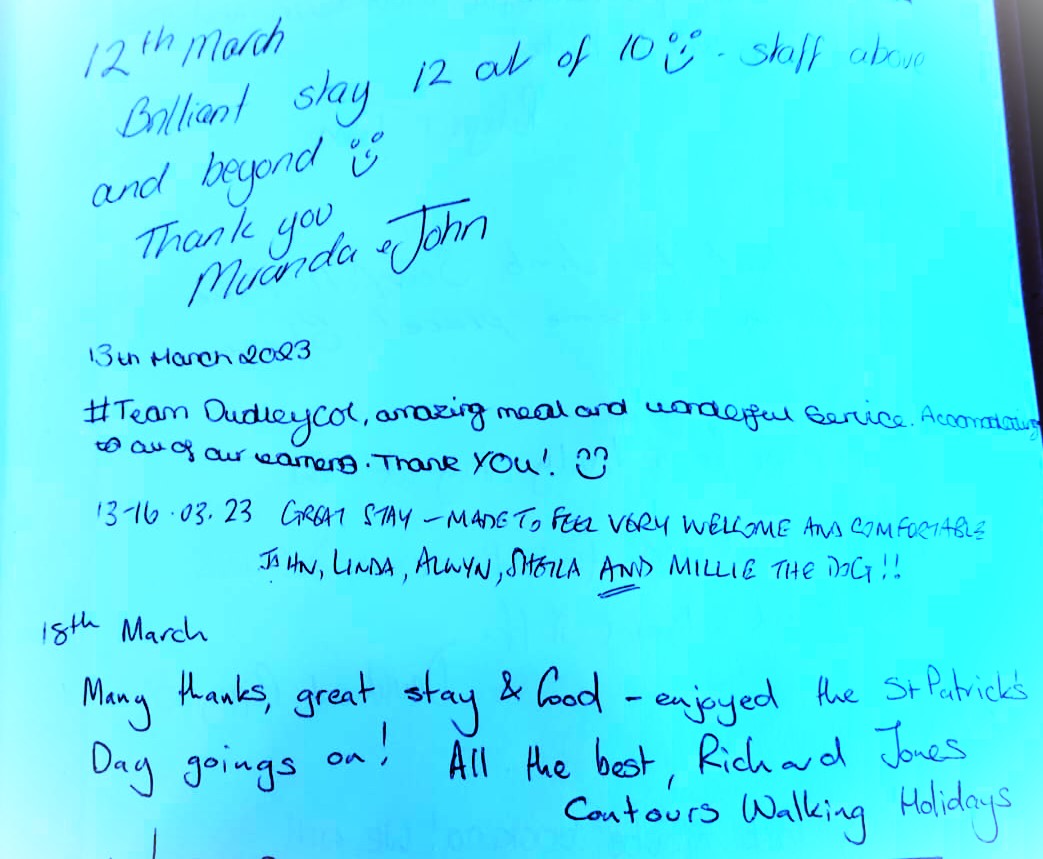 12th March
Brilliant stay 12 out of 10 - staff above
and beyond
Thank you
& John
13th March 2023
#Team Dudleycol, amazing meal and wonderful service. Accomodating
to all of our learners. Thank YOU!
13-16.03.23 GREAT STAY – MADE TO FEEL VERY WELCOME AND COMFORTABLE
JOHN, LINDA, ALWYN, SHEILA AND MILLIE THE DOG!!
18th March
Many thanks, great stay & food – enjoyed the St Patrick's
Day goings on! All the best, Richard Jones
Contours Walking Holidays